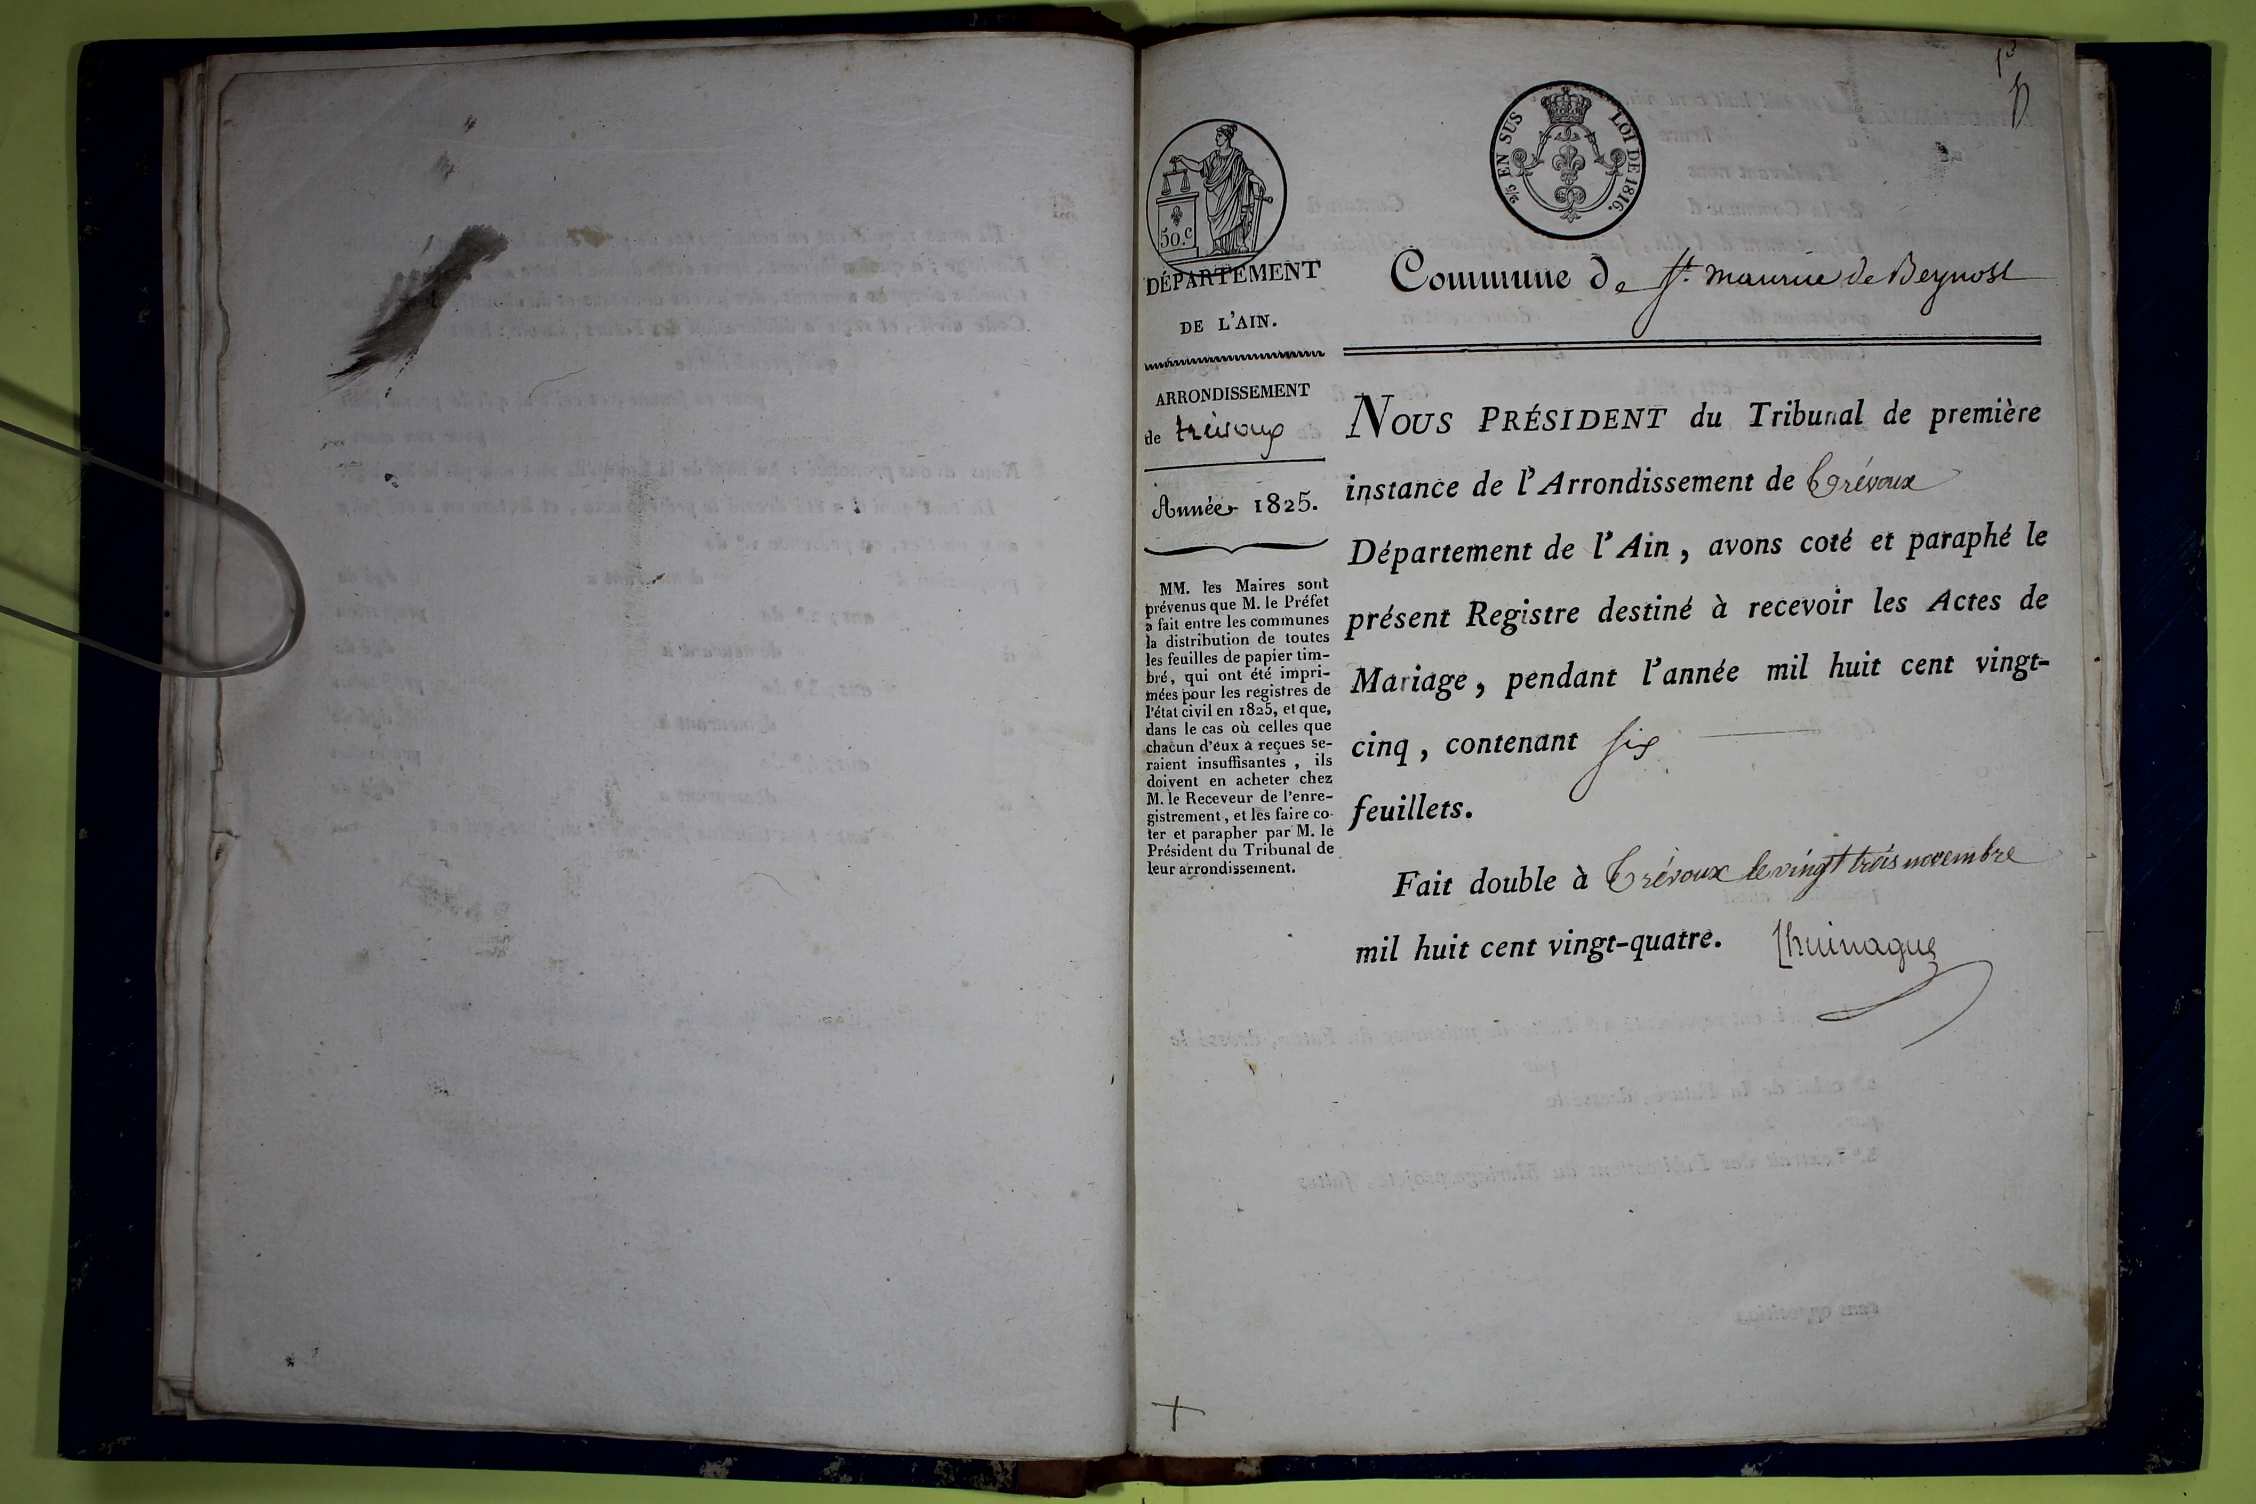 50.c
2/5 EN SUS LOI DE 1816.
DÉPARTEMENT
DE L'AIN.
ARRONDISSEMENT
de trévoux
Année 1825.
MM. les Maires sont
prévenus que M. le Préfet
a fait entre les communes
la distribution de toutes
les feuilles de papier tim-
bré, qui ont été impri-
mées pour les registres de
l'état civil en 1825, et que,
dans le cas où celles que
chacun d'eux a reçues se-
raient insuffisantes, ils
doivent en acheter chez
M. le Receveur de l'enre-
gistrement, et les faire co-
ter et parapher par M. le
Président du Tribunal de
leur arrondissement.
Commune de St. maurice de Beynost
NOUS PRÉSIDENT du Tribunal de première
instance de l'Arrondissement de Trévoux
Département de l'Ain, avons coté et paraphé le
présent Registre destiné à recevoir les Actes de
Mariage, pendant l'année mil huit cent vingt-
cinq, contenant six
feuillets.
Fait double à Trévoux le vingt trois novembre
mil huit cent vingt-quatre.